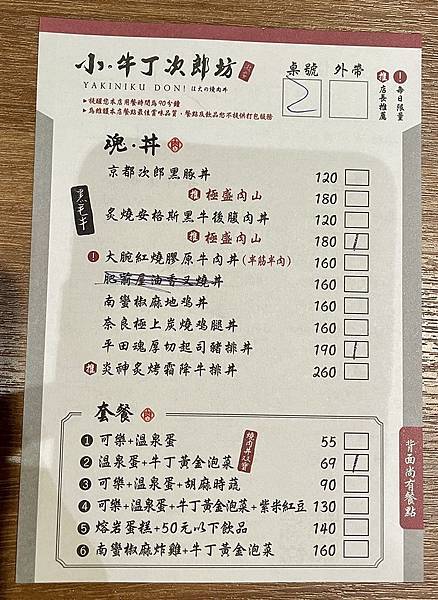 小牛丁次郎坊
YAKINIKU DON! 注大の燒肉丼
▶提醒您本店用餐時間為90分鐘
▶為維護本店餐點最佳賞味品質，餐點及飲品恕不提供打包服務
桌號 外帶
2
推 店長推薦
! 每日限量
魂·丼
京都次郎黑豚丼 120
推 極盛肉山 180
炙燒安格斯黑牛後腹肉丼 120
推 極盛肉山 180 1
! 大腕紅燒膠原牛肉丼(半筋半肉) 160
肥前屋油香叉燒丼 160
南蠻椒麻地鷄丼 160
奈良極上炭燒鷄腿丼 160
平田魂厚切起司豬排丼 190 1
推 炎神炙烤霜降牛排丼 260
套餐
燒肉丼
1 可樂+溫泉蛋 55
2 溫泉蛋+牛丁黃金泡菜 69 1
3 可樂+溫泉蛋+胡麻時蔬 90
4 可樂+溫泉蛋+牛丁黃金泡菜+紫米紅豆 130
5 熔岩蛋糕+50元以下飲品 140
6 南蠻椒麻炸雞+牛丁黃金泡菜 160
背面尚有餐點